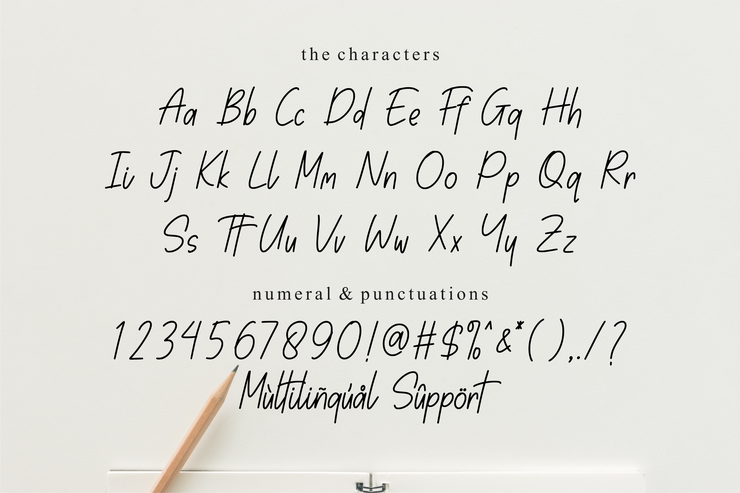 the characters
Aa Bb Cc Dd Ee Ff Gg Hh
Ii Jj Kk Ll Mm Nn Oo Pp Qq Rr
Ss Tt Uu Vv Ww Xx Yy Zz
numeral & punctuations
1234567890!@#$%^&*(),./?
Mùltiliñqúål Sûppört